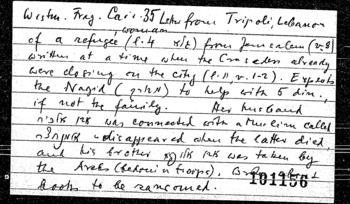 Westm. Frag. Cair. 35 Letter from Tripoli, Lebanon
woman
of a refugee (l. 4 r/t) from Jerusalem (v. 8)
written at a time when the Crusaders already
were closing on the city (l. 11, v. 1-2). Expects
the Nagid to help with 5 dim.,
if not the family. Her husband
was connected with a Muslim called
disappeared when the latter died
and his brother was taken by
the Arabs (bedouin troops),
books to be ransomed.
101156